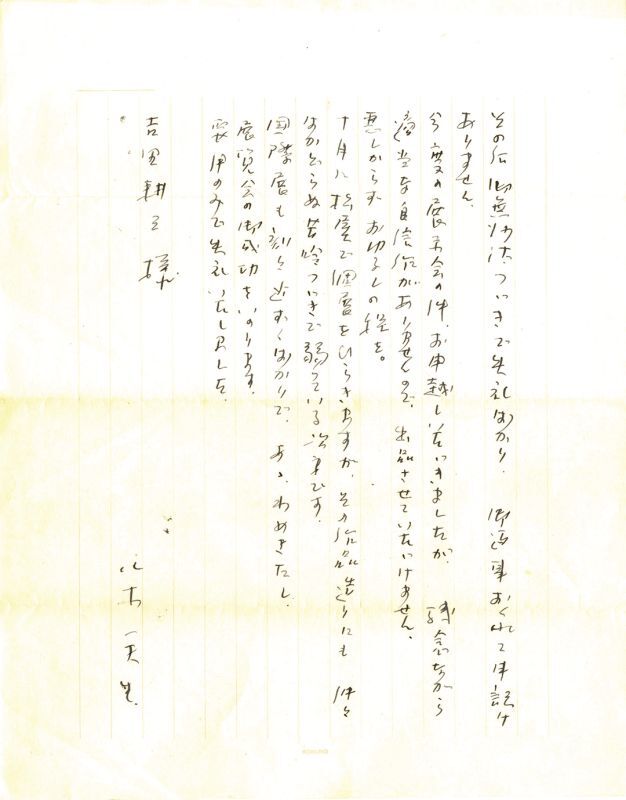 その后御無沙汰つゞきで失礼ばかり、御返事おくれて申訳け
ありません。
今度の展示会の件、お申越しいたゞきましたが、残念ながら
適当な自信作がありませんので、出品させていたゞけません。
悪しからずおゆるしの程を。
十月に松屋で個展をひらきますが、その作品造りにも仲々
はかどらぬ苦吟つゞきで弱っている次第です。
国際展も刻々近ずくばかりで、あゝ、わめきたし。
展覧会の御成功をいのります。
要用のみで失礼いたしました。
吉田耕三様
八木一夫